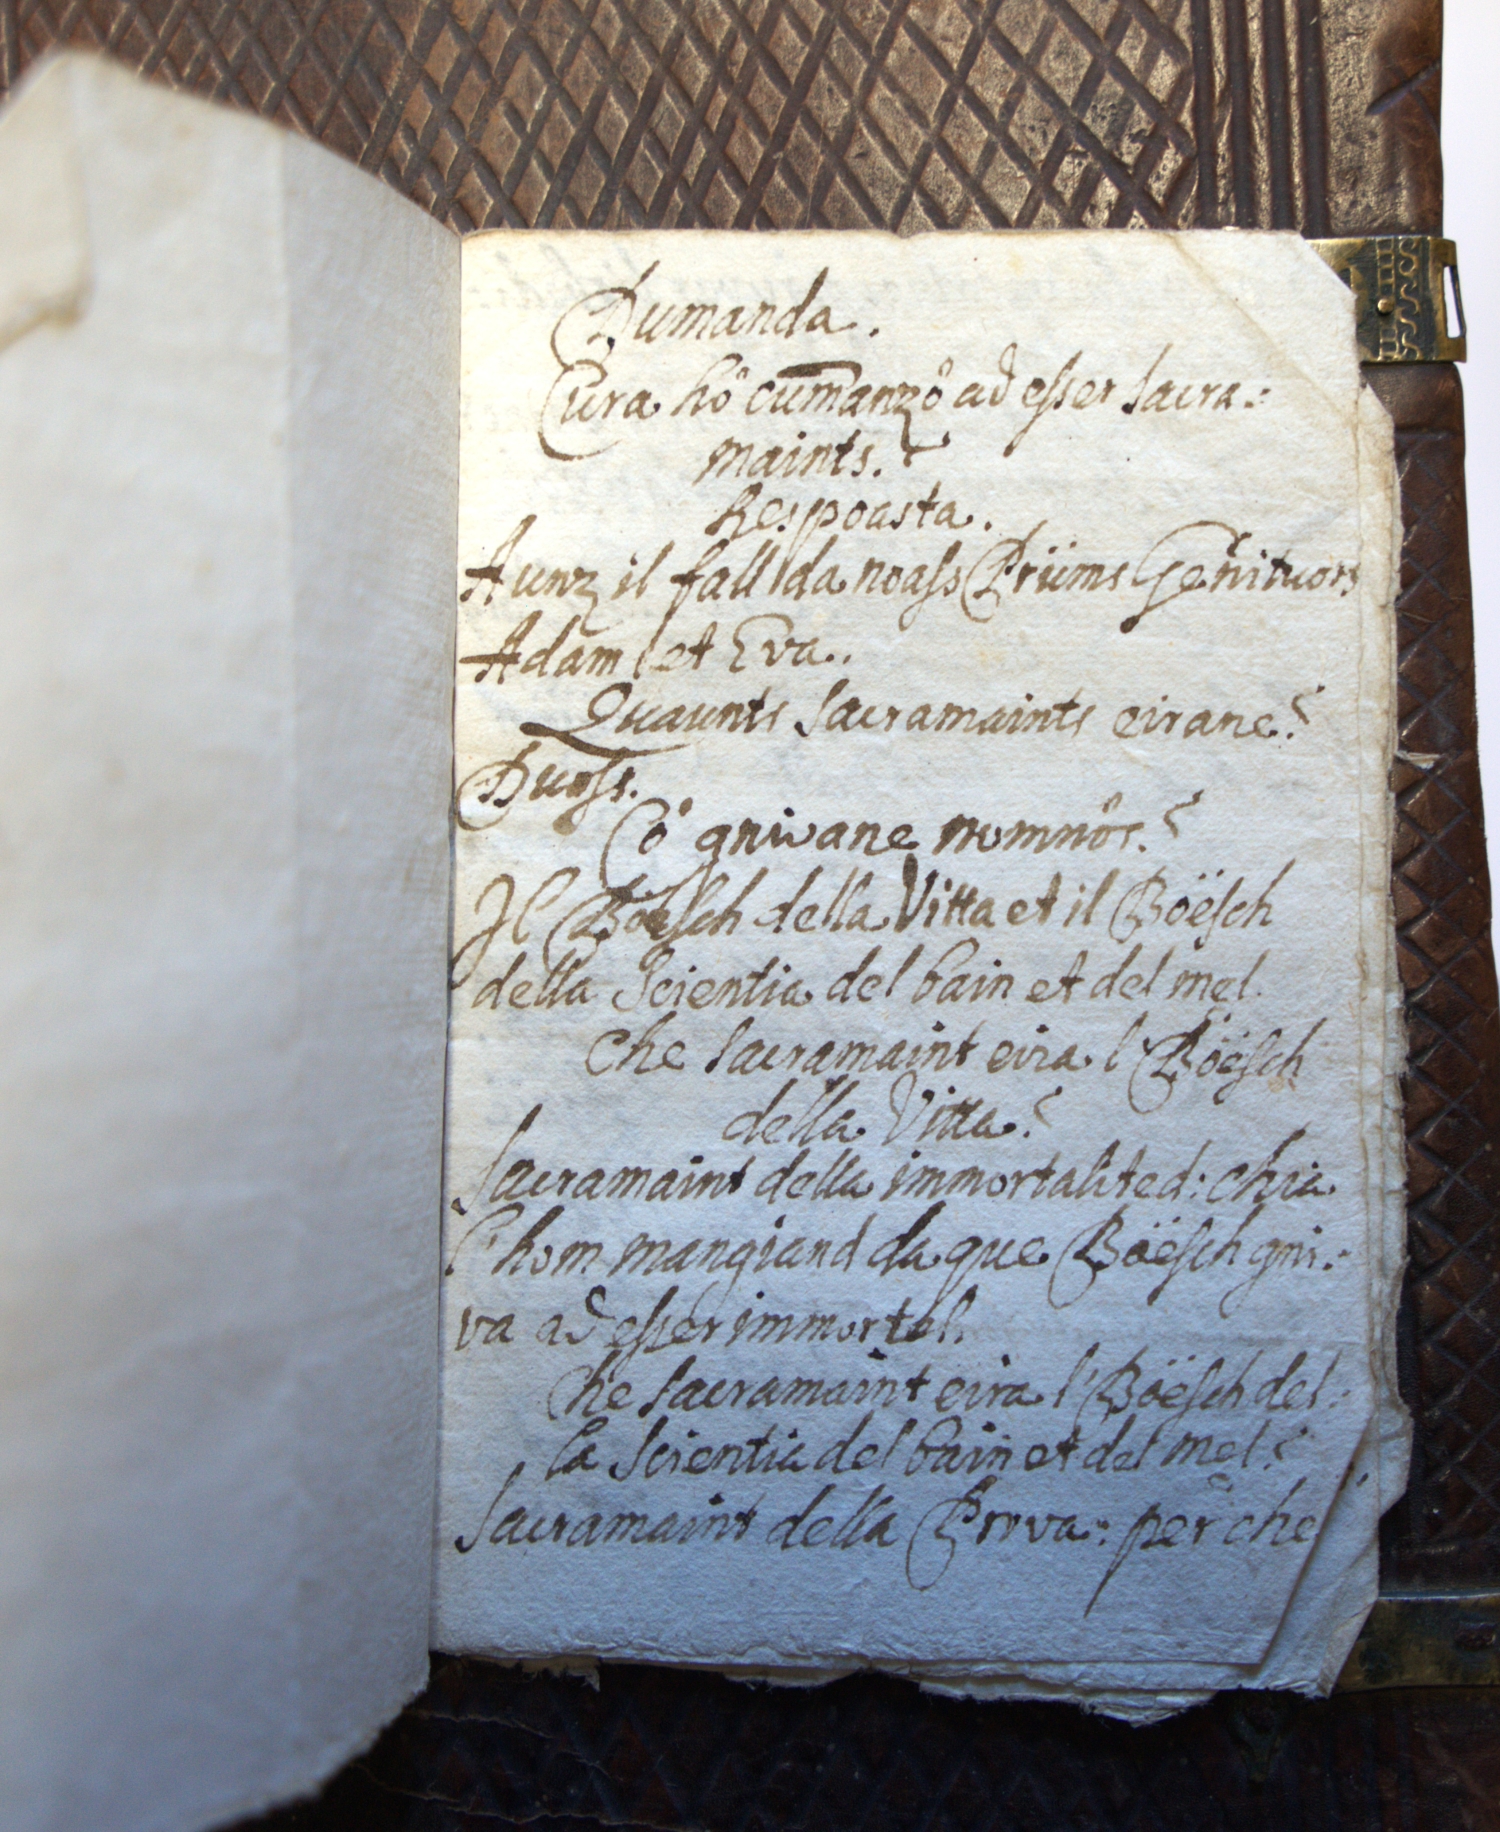 Dumanda.
Cura hô cumanzô ad eſser Sacra:
maints.?
Respoasta.
Aunz il fall da noaſs Prüms Genituors
Adam et Eva.
Quaunts Sacramaints eirane?
Duoſs.
Cô gnivane nomnôs.?
Il Böeſch della Vitta et il Böeſch
della Scientia del bain et del mel.
Che Sacramaint eira l' Böeſch
della Vitta?
Sacramaint della immortalited: chia
l' hom mangiand da que Böeſch gni:
va ad eſser immortel.
Che Sacramaint eira l' Böeſch del:
la Scientia del bain et del mel?
Sacramaint della Prova: per che